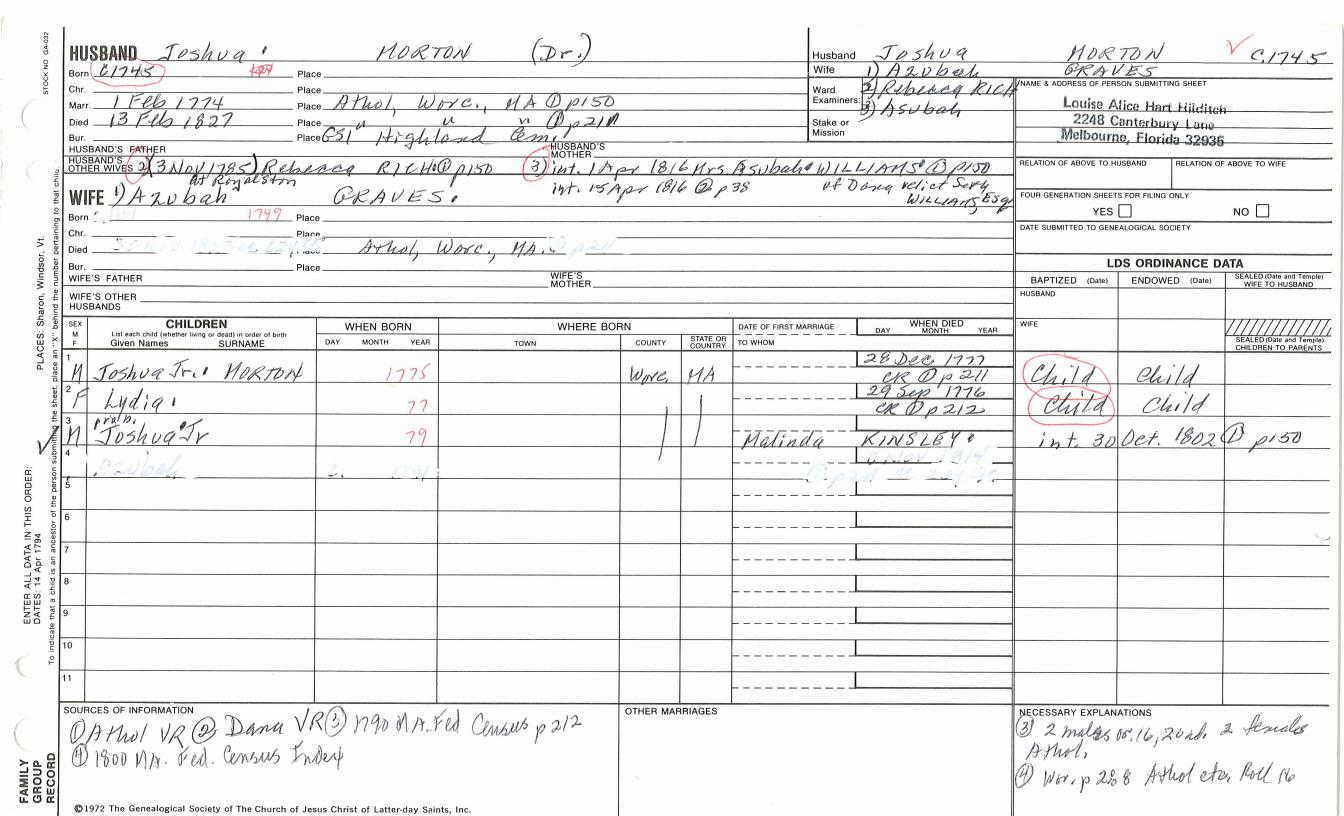 STOCK NO GA-032
HUSBAND Joshua MORTON (Dr.)
Born C1745 Place
Chr. Place
Marr. 1 Feb 1774 Place Athol, Worc., MA ① p150
Died 13 Feb 1827 Place " " " ① p211
Bur. Place GSI Highland Cem.
HUSBAND'S FATHER HUSBAND'S MOTHER
HUSBAND'S OTHER WIVES 2) (3 Nov 1785) Rebecca RICH ① p150 3) int. 1 Apr 1816 Mrs. Asubah WILLIAMS ① p150
at Royalston int. 15 Apr 1816 ② p38 of Dana relict Serg
WILLIAMS, Esq
WIFE 1) Azubah GRAVES.
Born 1749 Place
Chr. Place
Died Place Athol, Worc., MA. ① p211
Bur. Place
WIFE'S FATHER WIFE'S MOTHER
WIFE'S OTHER HUSBANDS
Husband Joshua MORTON C.1745
Wife 1) Azubah GRAVES
Ward 2) Rebecca RICH
Examiners: 3) Asubah
Stake or Mission
NAME & ADDRESS OF PERSON SUBMITTING SHEET
Louise Alice Hart Hilditch
2248 Canterbury Lane
Melbourne, Florida 32935
RELATION OF ABOVE TO HUSBAND RELATION OF ABOVE TO WIFE
FOUR GENERATION SHEETS FOR FILING ONLY
YES NO
DATE SUBMITTED TO GENEALOGICAL SOCIETY
LDS ORDINANCE DATA
BAPTIZED (Date) ENDOWED (Date) SEALED (Date and Temple) WIFE TO HUSBAND
HUSBAND
WIFE
SEALED (Date and Temple) CHILDREN TO PARENTS
SEX M F
CHILDREN
List each child (whether living or dead) in order of birth
Given Names SURNAME
WHEN BORN
DAY MONTH YEAR
WHERE BORN
TOWN COUNTY STATE OR COUNTRY
DATE OF FIRST MARRIAGE
TO WHOM
WHEN DIED
DAY MONTH YEAR
1 M Joshua Jr. MORTON 1775 Worc. MA 28 Dec 1777 CR ① p 211 Child Child
2 F Lydia 77 29 Sep 1776 CR ① p 212 Child Child
3 M prob. Joshua Jr 79 Malinda KINSLEY int. 30 Oct. 1802 ① p150
4
5
6
7
8
9
10
11
SOURCES OF INFORMATION
① Athol VR ② Dana VR ③ 1790 MA. Fed Census p 212
④ 1800 MA. Fed. Census Index
OTHER MARRIAGES
NECESSARY EXPLANATIONS
③ 2 males ov. 16, 2 females
Athol.
④ Wor. p Athol Roll 16
©1972 The Genealogical Society of The Church of Jesus Christ of Latter-day Saints, Inc.
FAMILY GROUP RECORD
ENTER ALL DATA IN THIS ORDER:
DATES: 14 Apr 1794
PLACES: Sharon, Windsor, Vt.
To indicate that a child is an ancestor of the person submitting the sheet, place an "X" behind the number pertaining to that child.